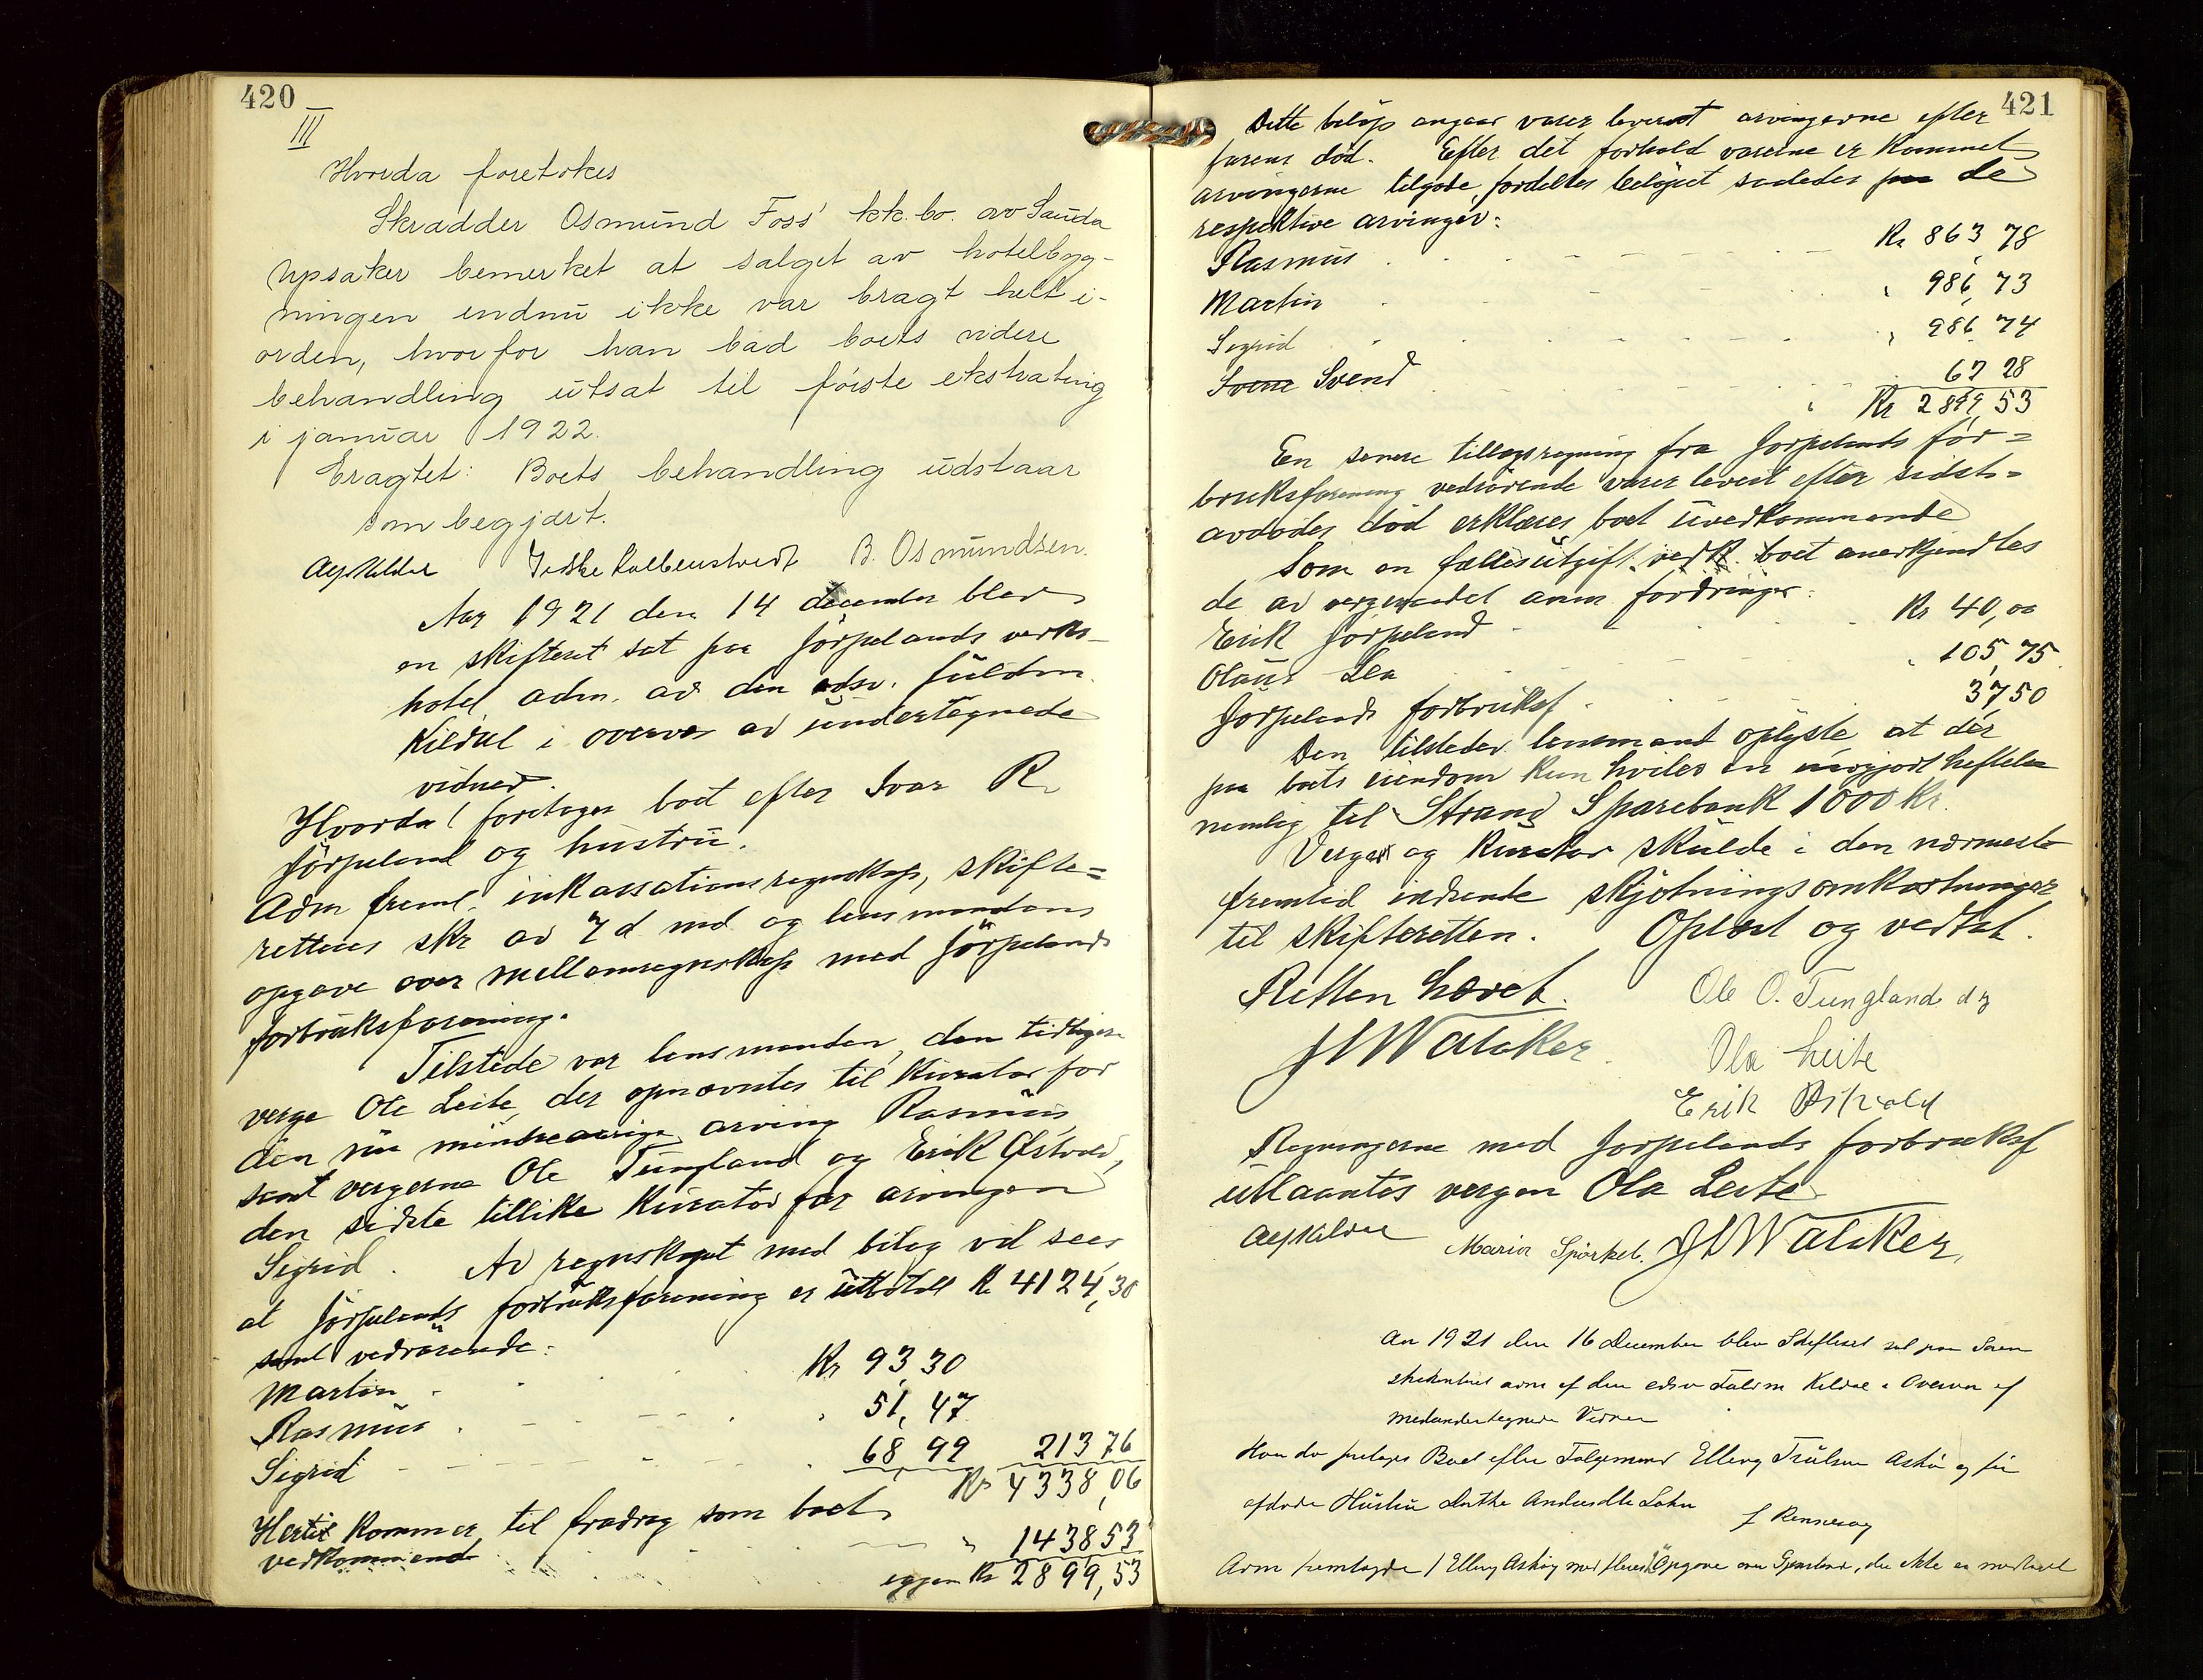 420
III
Hvorda foretokes
Skrædder Osmund Foss' kk. bo. av Sauda
Upsaker bemerket at salget av hotelbyg-
ningen endnu ikke var bragt helt i
orden, hvorfor han bad boets videre
behandling utsat til første ekstrating
i januar 1922.
Eragtet: Boets behandling udstaar
som begjært.
Alf Kildal B. Osmundsen.
Aar 1921 den 14 december blev
en skifteret sat paa Jørpelands verks-
hotel adm. av den edsv. fuldm.
Kildal i overvær av undertegnede
vidner.
Hvorda! foretoges boet efter Ivar R.
Jørpeland og hustru.
Adm freml. inkassationsregnskap, skifte=
rettens skr av 7 d md og lensmandens
opgave over mellemregnskap med Jørpelands
forbruksforening.
Tilstede var lensmanden, den tidligere
verge Ole Leite, der opnævntes til kurator for
den nu mindreaarige arving Rasmus,
samt vergerne Ole Tungland og Erik Østvold,
den sidste tillike kurator for arvingen
Sigrid. Av regnskapet med bilag vil sees
at Jørpelands forbruksforening er uttalt Kr 4124,30
samt vedrørende:
Martin Kr 93,30
Rasmus " 51,47
Sigrid 68,99 213 76
Kr 4338,06
Hertil kommer til fradrag som boet
vedkommende " 1438 53
igjen Kr 2899,53
421
Dette beløp angaar varer leveret arvingerne efter
farens død. Efter det forhold varerne er kommet
arvingerne tilgode fordeltes beløpet saaledes paa de
respektive arvinger:
Rasmus Kr 863,78
Martin " 986,73
Sigrid " 986,74
Svend 62 28
Kr 2899,53
En senere tillægsregning fra Jørpelands for=
bruksforening vedrørende varer levert efter sidst=
avdødes død erklæres boet uvedkommende
Som en fællesutgift vedk. boet anerkjendtes
de av vergerådet anm fordringer:
Erik Jørpeland Kr 40,00
Olaus Lea " 105,75
Jørpelands forbruksf. 37,50
Den tilstedev. lensmand oplyste at der
paa boets eiendom kun hviler en uavgjort heftelse
nemlig til Strand Sparebank 1000 Kr.
Verger og kurator skulde i den nærmeste
fremtid indsende skjøtningsomkostninger
til skifteretten. Oplæst og vedtat.
Retten hævet. Ole O. Tungland
JH Watcker. Ola Leite
Erik Østvold
Regningerne med Jørpelands forbruksf
utlaantes vergen Ola Leite
Alf Kildal Maria Spørkel. JH Watcker,
Aar 1921 den 16 December blev Skifteret sat paa Soren-
skriverkontoret adm af den edsv Fuldm Kildal i Overvær af
medundertegnede Vidner
Hvorda foretoges Boet efter Elling Askø og før
afdøde Hustru
f Rennesøy
Adm fremlagde 1 Elling Askøy Opgave over , der ikke er medtaget